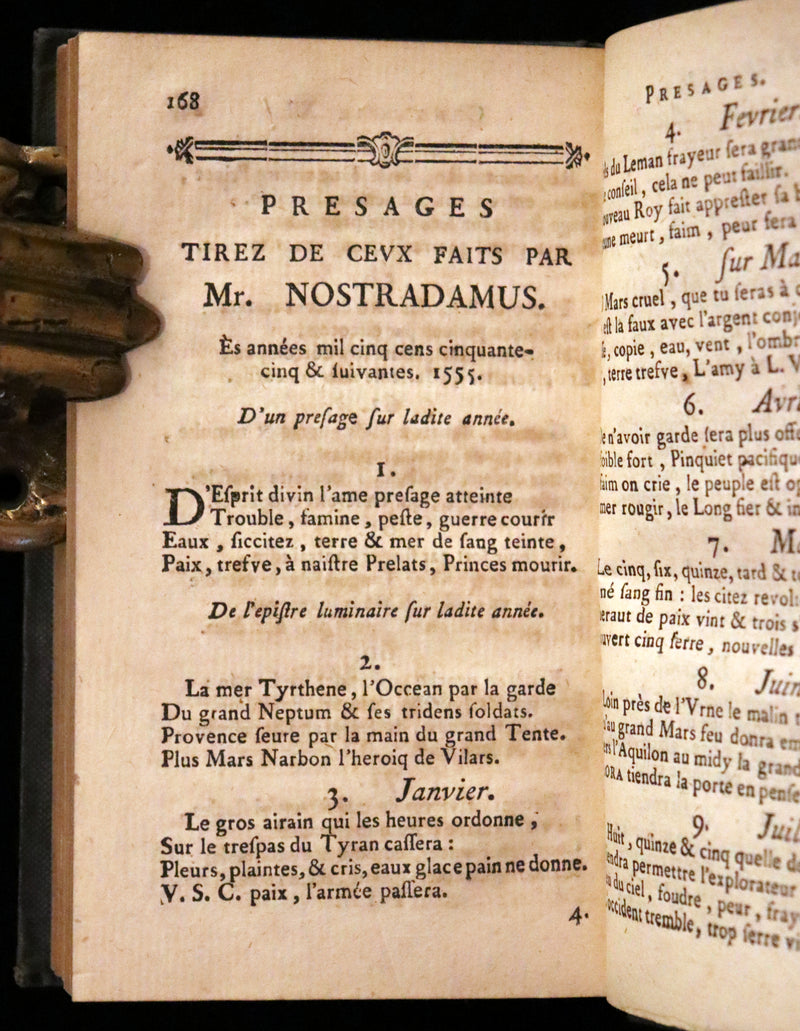 168
PRESAGES
TIREZ DE CEVX FAITS PAR
Mr. NOSTRADAMUS.
Ès années mil cinq cens cinquante-
cinq & ſuivantes. 1555.
D'un preſage ſur ladite année.
1.
D'Eſprit divin l'ame preſage atteinte
Trouble, famine, peſte, guerre courir
Eaux, ſiccitez, terre & mer de ſang teinte,
Paix, trefve, à naiſtre Prelats, Princes mourir.
De l'epiſtre luminaire ſur ladite année.
2.
La mer Tyrthene, l'Occean par la garde
Du grand Neptum & ſes tridens ſoldats.
Provence ſeure par la main du grand Tente.
Plus Mars Narbon l'heroiq de Vilars.
3. Janvier.
Le gros airain qui les heures ordonne,
Sur le treſpas du Tyran caſſera:
Pleurs, plaintes, & cris, eaux glace pain ne donne.
V. S. C. paix, l'armée paſſera.
4.
PRESAGES.
4. Fevrier
du Leman frayeur ſera
conſeil, cela ne peut faillir.
Roy fait appreſter ſa
meurt, faim, peur ſera
5. ſur
Mars cruel, que tu ſeras à
eſt la faux avec l'argent
copie, eau, vent,
terre trefve, L'amy à L. V
6.
n'avoir garde ſera plus
fort, Pinquiet
on crie, le peuple eſt
mer rougir, le Long fier &
7.
Le cinq, ſix, quinze, tard &
né ſang fin: les citez
de paix vint & trois
cinq ſerre, nouvelles
8.
près de l'Vrne le malin
grand Mars feu donra
l'Aquilon au midy la
tiendra la porte en
9.
Huit, quinze & cinq quelle
permettre l'explorateur
du ciel, foudre, peur,
tremble, trop ſerre